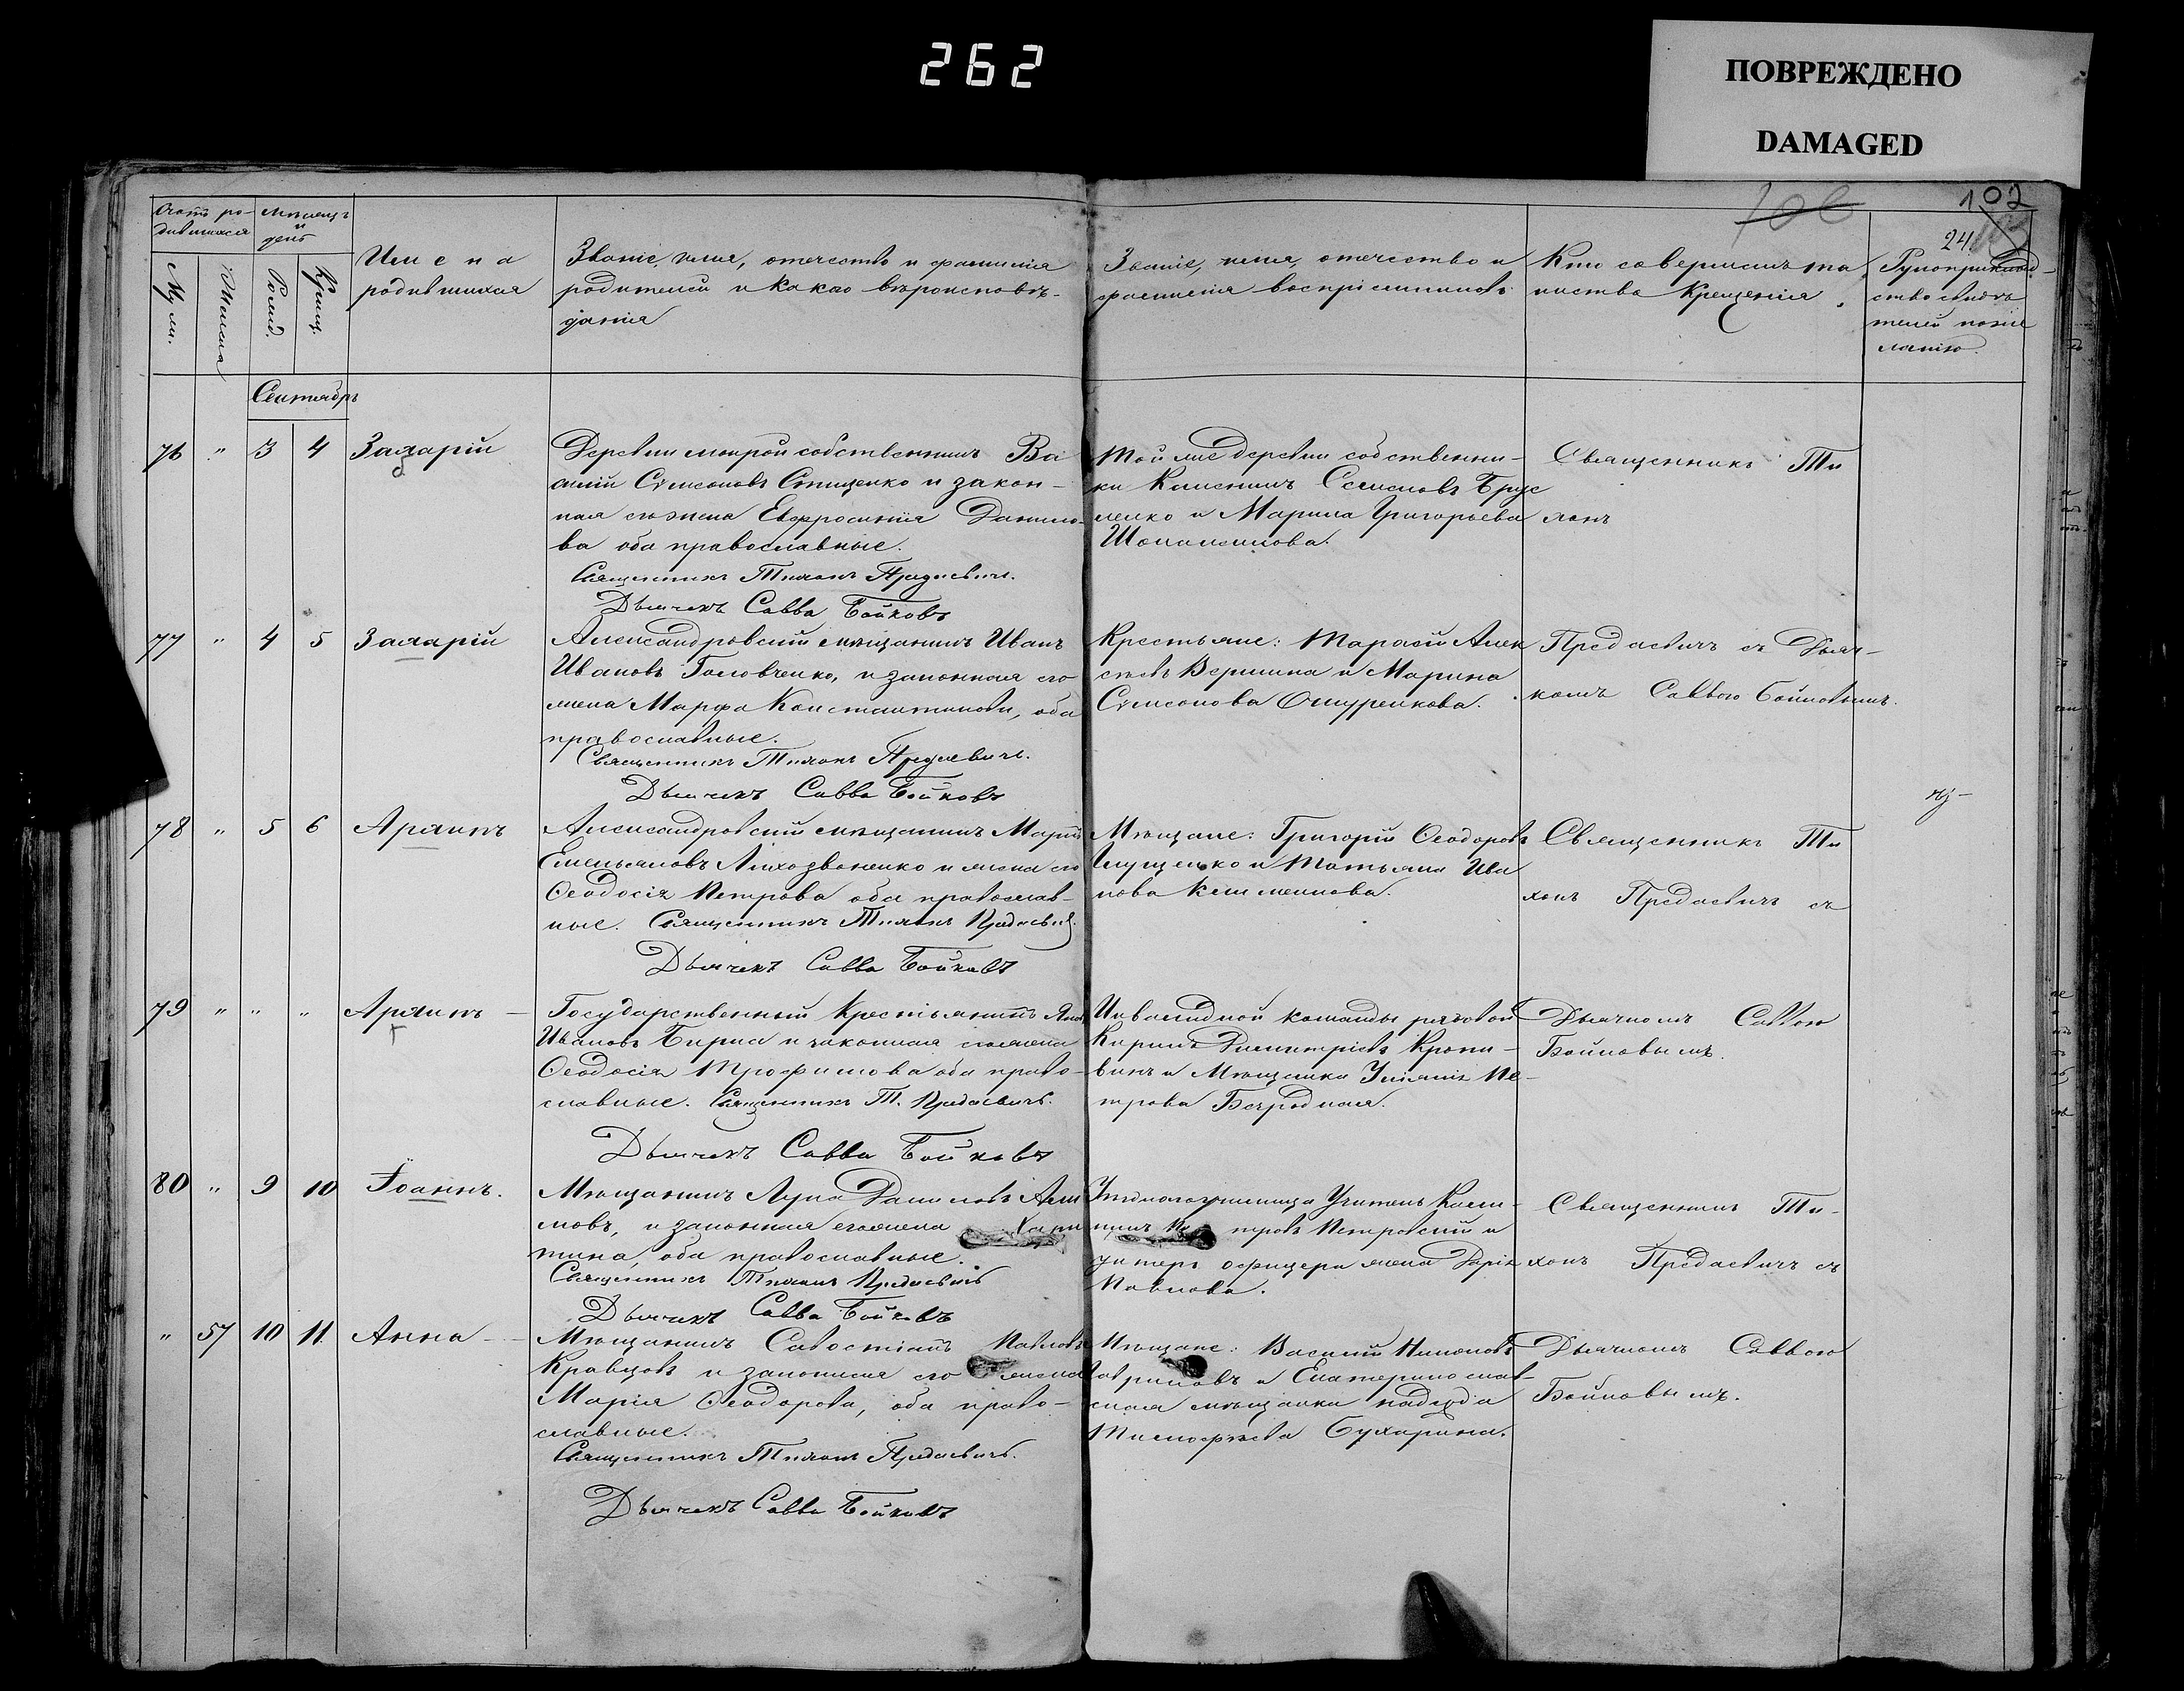 262
ПОВРЕЖДЕНО
DAMAGED
106
102
24
Счетъ ро-
дившихся
Мѣсяцъ
и
день
Муж.
Женска
Рожд.
Крещ.
Имена
родившихся
Званіе, имя, отчество и фамилія
родителей и какого вѣроисповѣ-
данія
Званіе, имя, отчество и
фамилія воспріемниковъ
Кто совершилъ та
инство Крещенія.
Рукоприклад-
ство свидѣ
телей по же
ланію.
Сентябрь
76 " 3 4 Захарій
Деревни Мокрой собственникъ Ва
силій Симеоновъ Стищенко и закон-
ная его жена Евфросинія Данило-
ва оба православные.
Священникъ Тихонъ Предаевичъ.
Дьячекъ Савва Бойковъ
Той же деревни собственни-
ки Климъ Семеновъ Брус
ленко и Марина Григорьева
Священникъ Ти
хонъ
77 " 4 5 Захарій
Александровскій мѣщанинъ Иванъ
Ивановъ Головченко, и законная его
жена Марфа Константинова, оба
православные.
Священникъ Тихонъ Предаевичъ.
Дьячекъ Савва Бойковъ
Крестьяне: Тарасій Алек
сѣевъ Вершина и Марина
Симеонова Ошуренкова.
Предаевичъ съ Дьяч-
комъ Саввою Бойковымъ.
78 " 5 6 Архипъ
Александровскій мѣщанинъ
Емельяновъ Лиходвоненко и жена его
Ѳеодосія Петрова оба православ-
ные. Священникъ Тихонъ Предаевичъ.
Дьячекъ Савва Бойковъ
Мѣщане: Григорій Ѳеодоровъ
и Татьяна Ива
нова
Священникъ Ти
хонъ Предаевичъ съ
79 " " " Архипъ
Государственный Крестьянинъ
Ивановъ Бирка и законная его жена
Ѳеодосія Трофимова оба право-
славные. Священникъ Т. Предаевичъ.
Дьячекъ Савва Бойковъ
Инвалидной команды рядовой
Кирилъ Димитріевъ Кропи-
винъ и Мѣщанка Іуліанія Пе-
трова Безродная.
Дьячкомъ Саввою
Бойковымъ.
80 " 9 10 Іоаннъ.
Мѣщанинъ Лука Даниловъ Али
мовъ, и законная его жена Хари
тина, оба православные.
Священникъ Тихонъ Предаевичъ
Дьячекъ Савва Бойковъ
Уѣзднаго училища Учитель
Петровъ Петровскій и
унтеръ офицера жена Дарія
Павлова.
Священникъ Ти-
хонъ Предаевичъ съ
" 57 10 11 Анна
Мѣщанинъ Савостіанъ Павловъ
Кравцовъ и законная его жена
Марія Ѳеодорова, оба право-
славные.
Священникъ Тихонъ Предаевичъ.
Дьячекъ Савва Бойковъ
Мѣщане: Василій Никоновъ
Гавриловъ и Екатеринослав-
ская мѣщанка Надежда
Тимофѣева Бухарина.
Дьячкомъ Саввою
Бойковымъ.